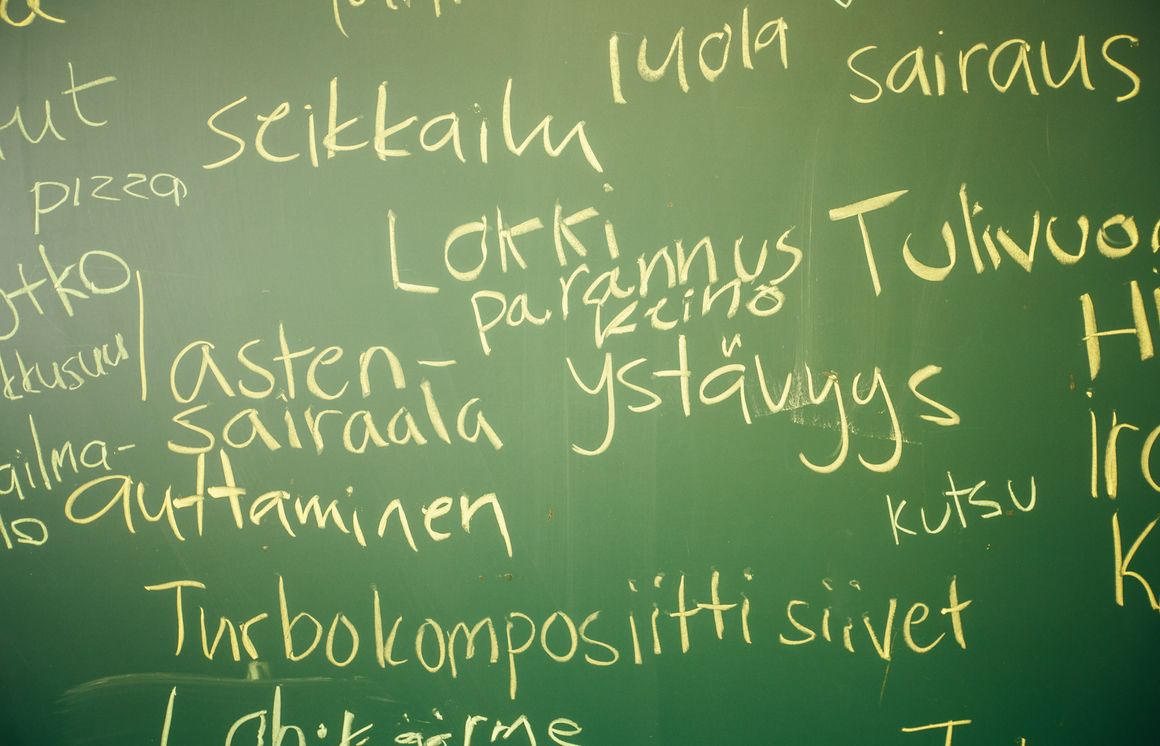 luola
sairaus
seikkailu
pizza
Lokki
Tulivuo
parannus
keino
lasten-
sairaala
ystävyys
ailma-
auttaminen
kutsu
Turbokomposiitti siivet